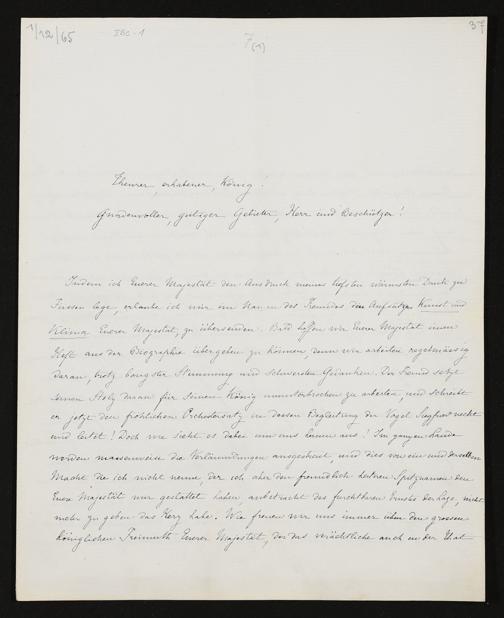 1/12/65 IBc-1 7(1) 37
Theurer, erhabener, König!
Gnadenvoller, gütiger Gebieter, Herr und Beschützer!
Indem ich Euerer Majestät den Ausdruck meines tiefsten wärmsten Danks zu
Füssen lege, erlaube ich mir im Namen des Freundes den Aufsatz Kunst und
Klima Euerer Majestät zu übersenden. Bald hoffen wir Euerer Majestät einen
Heft aus der Biographie übergeben zu können, denn wir arbeiten regelmässig
daran, trotz banger Stimmung und schwersten Gedanken. Der Freund setzt
seinen Stolz daran für Seinen König ununterbrochen zu arbeiten, und schreibt
er jetzt den fröhlichen Orchestersatz in dessen Begleitung der Vogel Siegfried neckt
und leitet! Doch wie sieht es dabei um uns herum aus! Im ganzen Lande
werden massenweise die Verläumdungen ausgestreut, und dies von ein und derselben
Macht die ich nicht nenne, der ich aber den freundlich heitren Spitznamen den
Eure Majestät mir gestattet haben anbetracht des furchtbaren Ernstes der Lage, nicht
mehr zu geben das Herz habe. Wie freuen wir uns immer über den grossen
königlichen Freimuth Euerer Majestät, der das verächtliche auch in der That